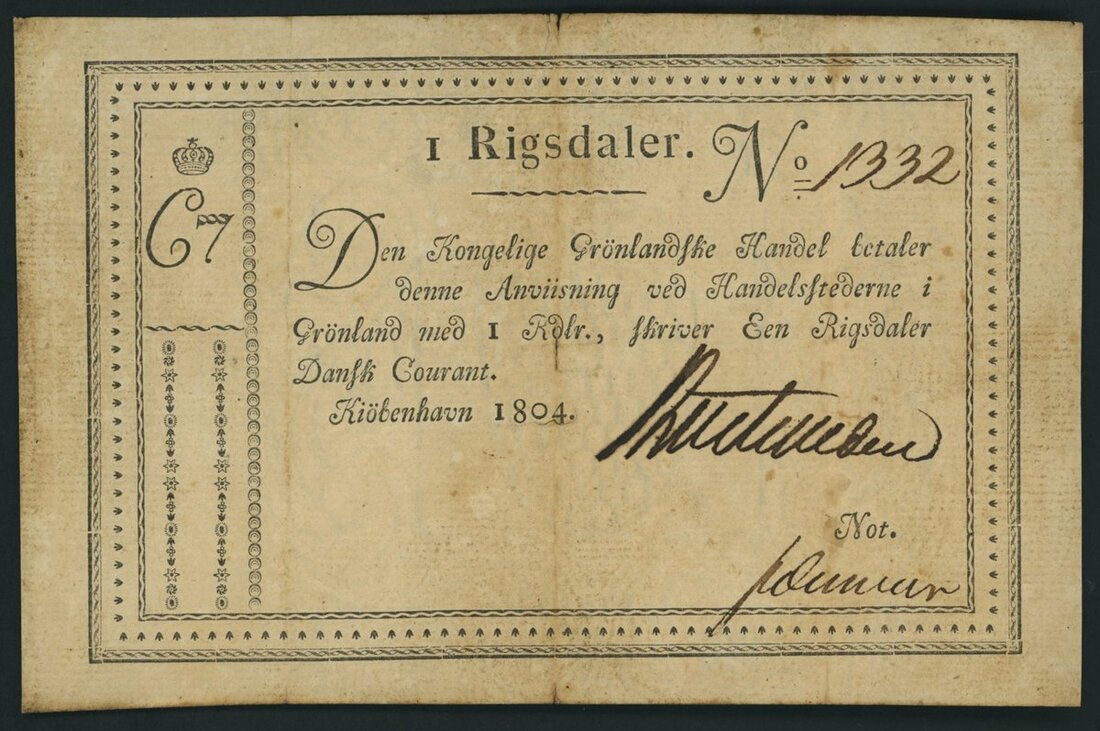 1 Rigsdaler. No 1332
C7
Den Kongelige Grönlandske Handel betaler
denne Anviisning ved Handelsstederne i
Grönland med 1 Rdlr., skriver Een Rigsdaler
Dansk Courant.
Kiöbenhavn 1804.
Not.